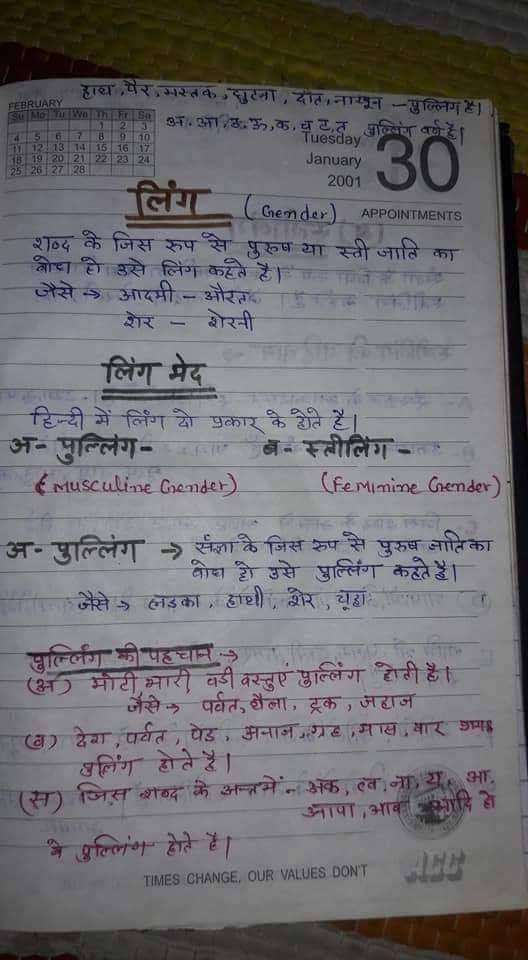 हाथ, पैर, मस्तक, घुटना, दाँत, नाखून - पुल्लिंग है।
अ, आ, इ, ऊ, क, च, ट, त पुल्लिंग वर्ण है।
FEBRUARY
Su Mo Tu We Th Fr Sa
1 2 3
4 5 6 7 8 9 10
11 12 13 14 15 16 17
18 19 20 21 22 23 24
25 26 27 28
Tuesday
January
2001
30
लिंग (Gender)
APPOINTMENTS
शब्द के जिस रूप से पुरुष या स्त्री जाति का
बोध हो उसे लिंग कहते है।
जैसे → आदमी - औरत
शेर - शेरनी
लिंग भेद
हिन्दी में लिंग दो प्रकार के होते है।
अ- पुल्लिंग- ब- स्त्रीलिंग -
(Musculine Gender) (Feminine Gender)
अ- पुल्लिंग → संज्ञा के जिस रूप से पुरुष जाति का
बोध हो उसे पुल्लिंग कहते है।
जैसे → लडका, हाथी, शेर, चूहा
पुल्लिंग की पहचान →
(अ) मोटी, भारी बडी वस्तुएं पुल्लिंग होती है।
जैसे → पर्वत, थैला, ट्रक, जहाज
(ब) देश, पर्वत, पेड, अनाज, ग्रह, मास, वार
पुल्लिंग होते है।
(स) जिस शब्द के अन्त में - अक, त्व, ना, य, आ,
आपा, आव आदि हो
वे पुल्लिंग होते है।
TIMES CHANGE, OUR VALUES DON'T
ACC